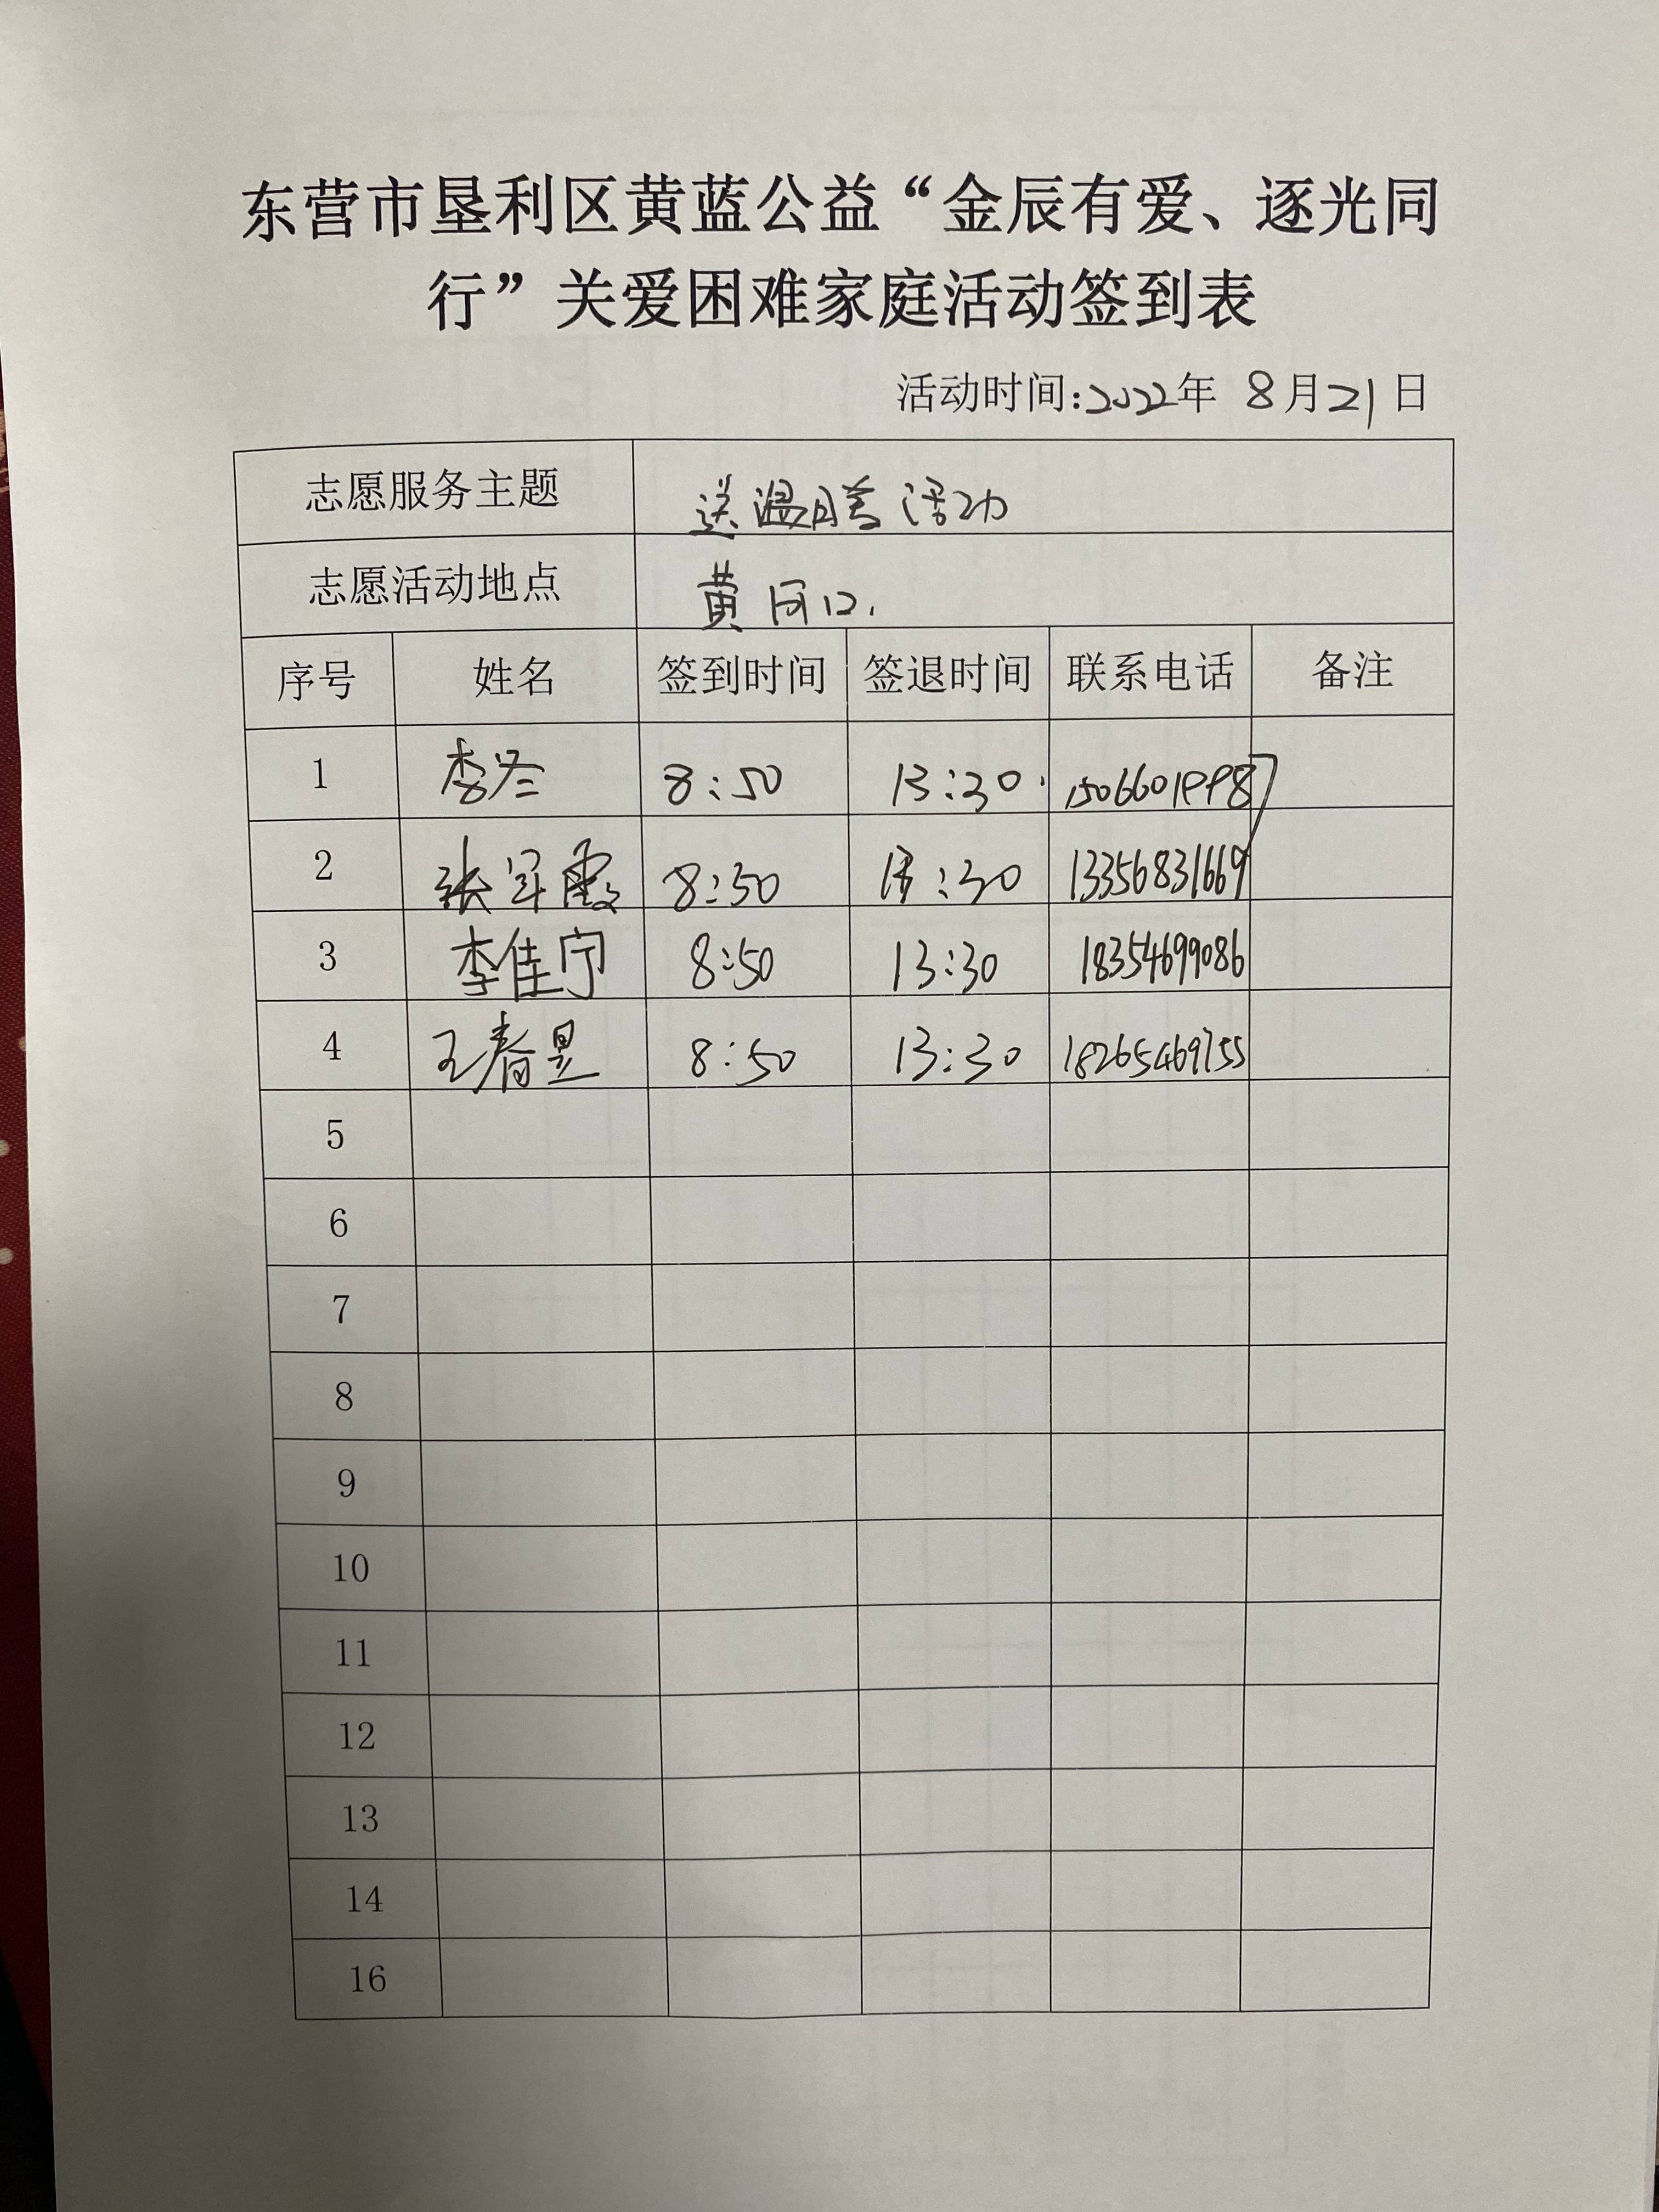 东营市垦利区黄蓝公益“金辰有爱、逐光同
行”关爱困难家庭活动签到表
活动时间:2022年 8月21日
志愿服务主题 送温暖活动
志愿活动地点 黄河口.
序号 姓名 签到时间 签退时间 联系电话 备注
1 李 8:50 13:30.
2 张军霞 8:50 13:30 13356831669
3 李佳宁 8:50 13:30 18354699086
4 王春昱 8:50 13:30 18265469755
5
6
7
8
9
10
11
12
13
14
16